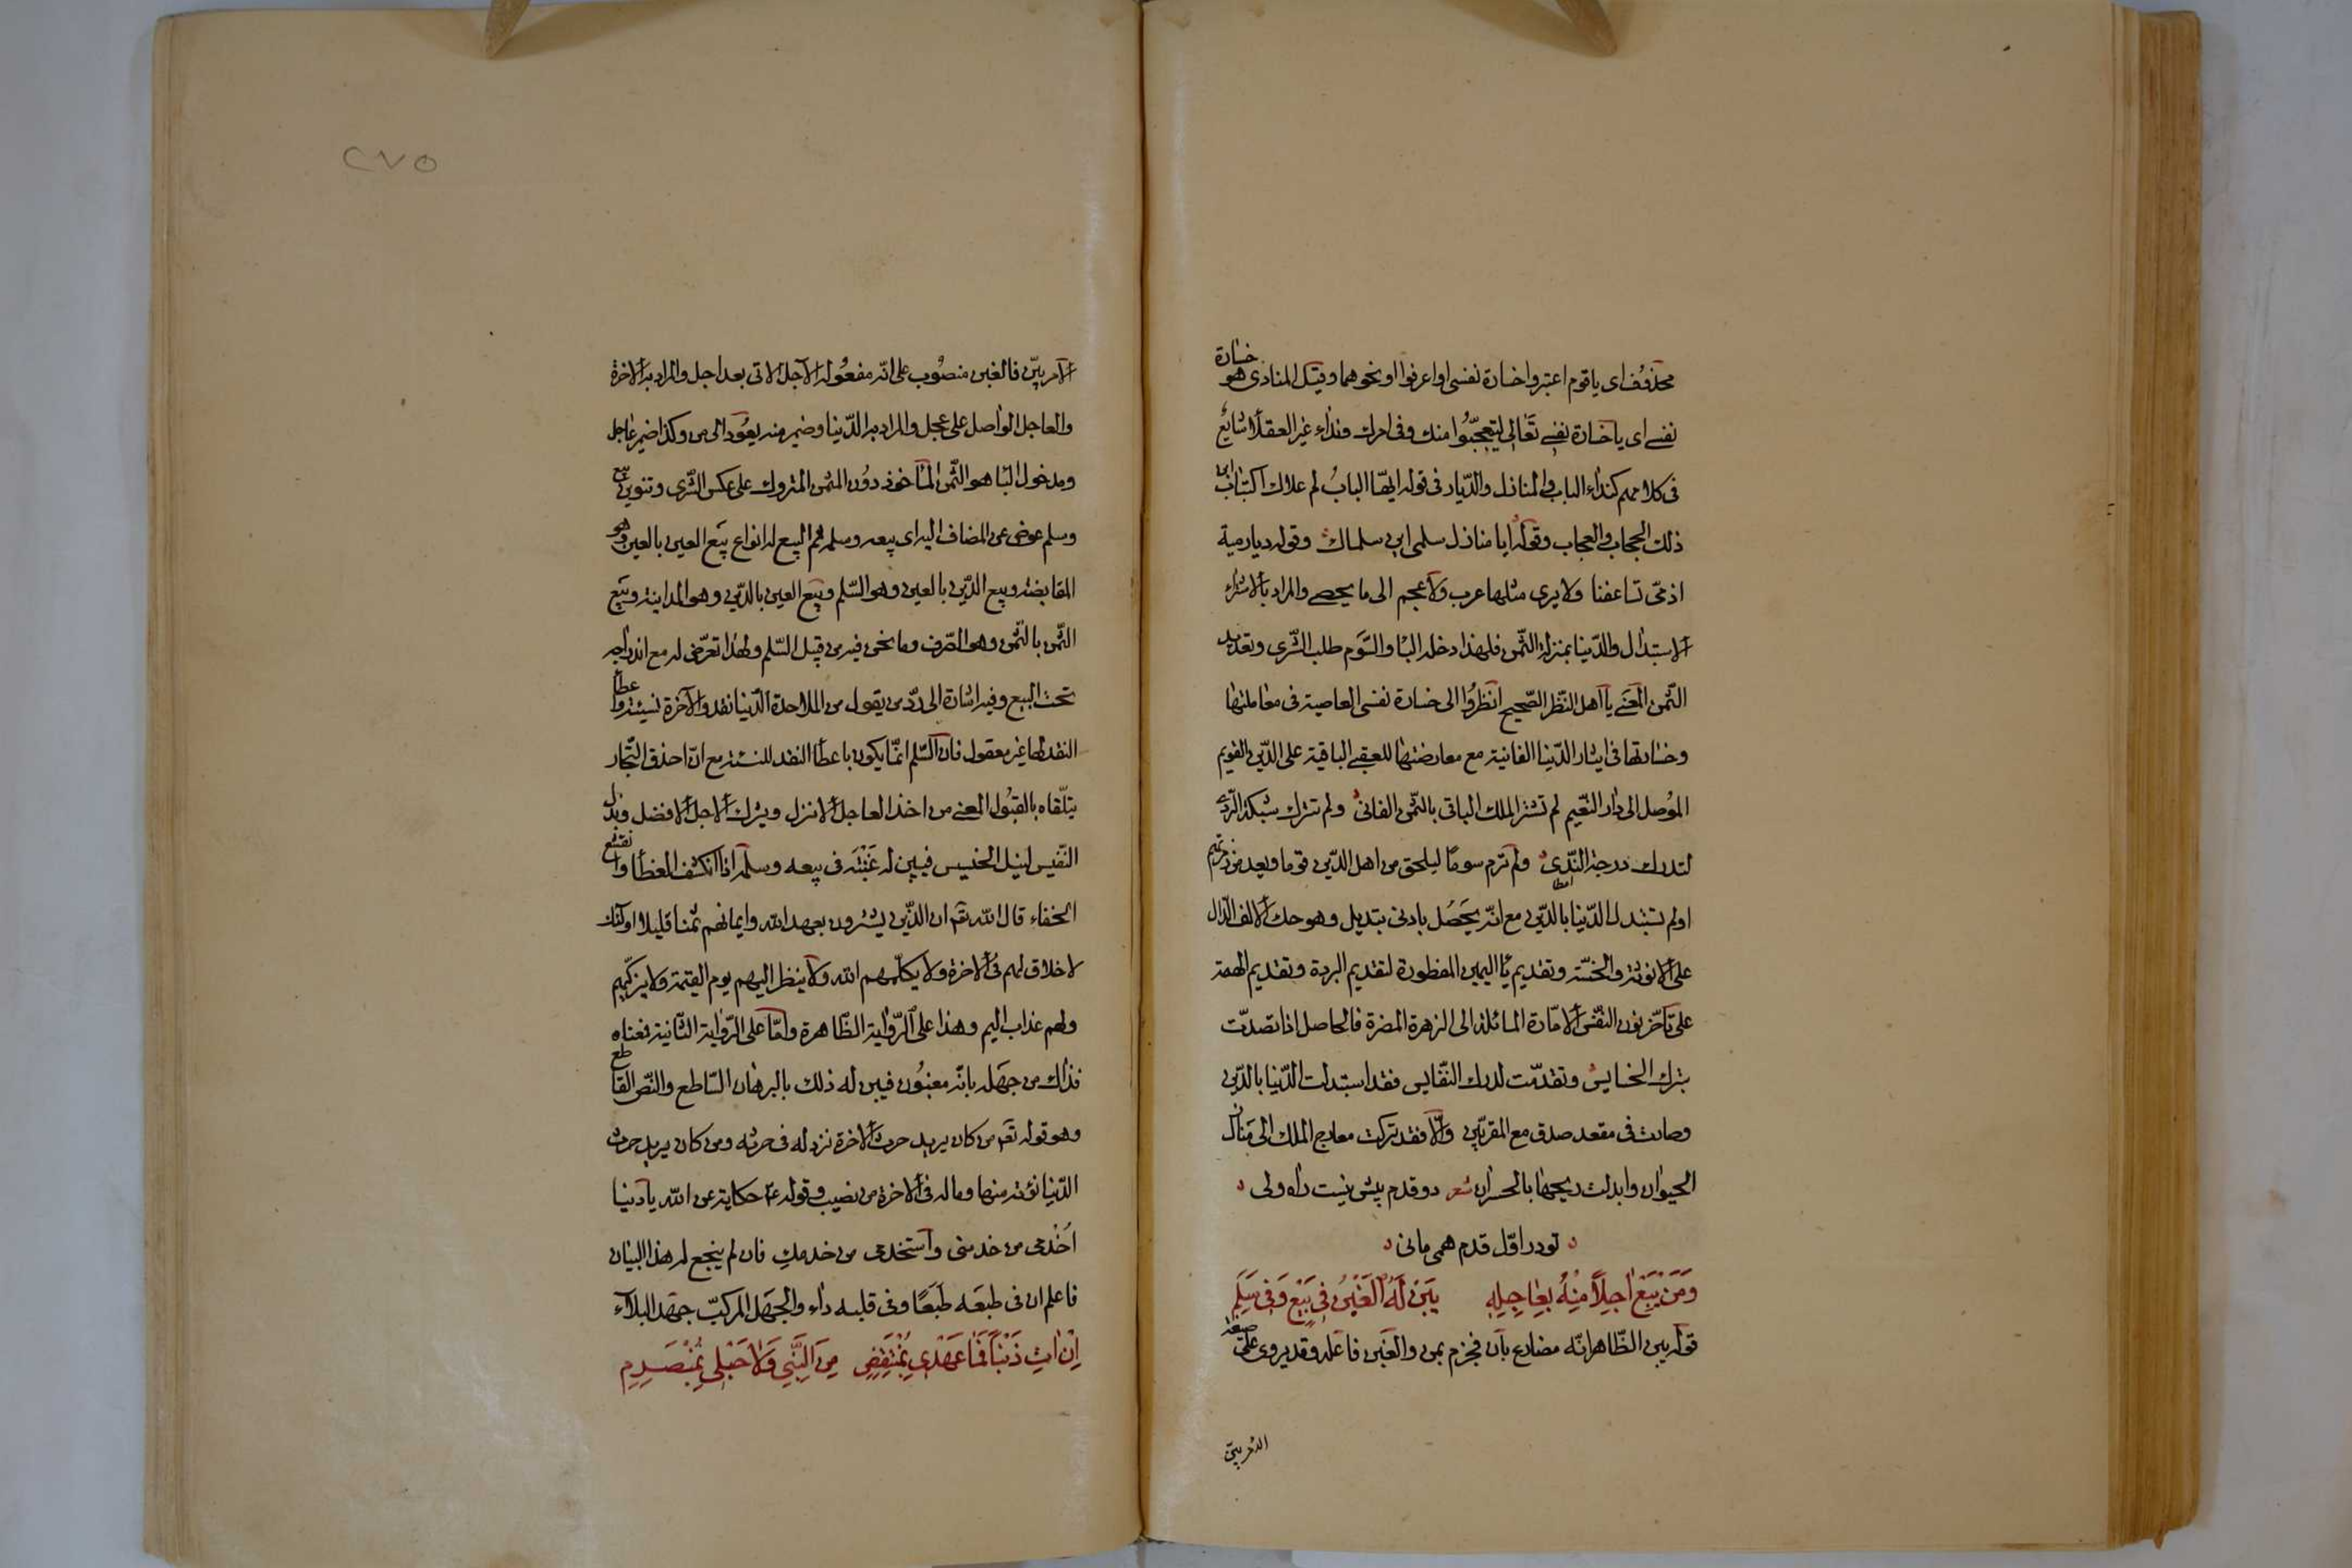 محذوف اى يا قوم اعتبروا خسارة نفسى او اعرفوا او نحوهما وقيل المنادى هو خسارة
نفسے اى يا خسارة نفسے تعالى ليتعجّبوا منك وفى امرك ونداء غير العقلاء شائع
فى كلامهم كنداء الباب والمنازل والديار فى قوله ايهّا الباب لم علاك اكتئاب
ذلك الحجاب والعجاب وقوله ايا منازل سلمى اين سلماك وقوله ديار مية
اذ مىّ تساعفنا ولا يرى مثلها عرب ولا عجم الى ما يحصے والمراد بالاشتراء
الاستبدال والدّنيا بمنزلة الثّمن فلهذا دخله البا والسّوم طلب الشّرى وتعديد
الثّمن المعنے يا اهل النّظر الصّحيح انظروا الى خسارة نفسى العاصية فى معاملتها
وخسارتها فى ايثار الدّنيا الفانية مع معارضتها للعقبے الباقية على الدّين القويم
الموصل الى دار النّعيم لم تشتر الملك الباقى بالثّمن الفانى ولم تترك
لتدرك درجة النّدى ولم ترم سومًا ليلحق من اهل الدّين قوما
او لم تستبدل الدّنيا بالدّين مع انّه يحصل بادنى تبديل وهو حك الالف الدّال
على الانوثة والخسّة وتقديم يا اليمين
على تأخّر نون النّفس الامّارة المائلة الى الزهرة المضرة فالحاصل اذا تصدّت
بترك الخسايس وتقدّمت لدرك النّفايس فقد استبدلت الدّنيا بالدّين
وصارت فى مقعد صدق مع المقرّبين والّا فقد تركت معارج الملك الى منازل
الحيوان وابدلت ربحها بالخسران شعر دو قدم بيش نيست راه ولى
تو در اوّل قدم همى مانى
وَمَنْ يَبِعْ اٰجِلًا مِنْهُ بِعَاجِلِهِ يَبِنْ لَهُ الْغَبْنُ فِى بَيْعٍ وَفِى سَلَمِ
قوله يبن الظّاهر انّه مضارع بان فجزم بمن والغبن فاعله وقد يروى على صيغة
الامر يبيّن
الامر يبيّن فالغبن منصوب على انّه مفعوله الآجل الاتى بعد اجل والمراد به الاخرة
والعاجل الواصل على عجل والمراد به الدّنيا وضمير منه يعود الى من وكذا ضمير عاجله
ومدخول البا هو الثّمن المأخوذ دون المثمن المتروك على عكس الشّرى وتنوين بيع
وسلم عوض عن المضاف اليه اى بيعه وسلمه ثم البيع له انواع بيع العين بالعين وهو
المقايضة وبيع الدّين بالعين وهو السّلم وبيع العين بالدّين وهو المداينة وبيع
الثّمن بالثّمن وهو الصّرف وما نحن فيه من قبيل السّلم ولهذا تعرّض له مع اندراجه
تحت البيع وفيه اشارة الى ردّ من يقول من الملاحدة الدّنيا نقد والآخرة نسيئة واعطأ
النقد لها غير معقول فان السّلم انّما يكون باعطأ النقد للنسئة مع انّ احذق التّجار
يتلّقاه بالقبول المعنے من اخذ العاجل الانزل ويترك الاجل الافضل وبذل
النّفيس لنيل الخسيس فيبين له غبنه فى بيعه وسلمه اذا انكشف الغطأ وانقشع
الخفاء قال الله تعم ان الذّين يشترون بعهد الله وايمانهم ثمنا قليلا اولئك
لا خلاق لهم فى الاخرة ولا يكلّمهم الله ولا ينظر اليهم يوم القيمة ولا يزكّيهم
ولهم عذاب اليم وهذا على الرّواية الظّاهرة وامّا على الرّواية الثّانية فمعناه
فذلك من جهله بانّه مغبون فيبن له ذلك بالبرهان السّاطع والنّص القاطع
وهو قوله تعم من كان يريد حرث الاخرة نزد له فى حرثه ومن كان يريد حرث
الدّنيا نؤته منها وماله فى الاخرة من نصيب وقوله عم حكاية عن الله يا دنيا
اخدمى من خدمنى واستخدمى من خدمك فان لم ينجع له هذا البيان
فاعلم ان فى طبعه طبعًا وفى قلبه داء والجهل المركبّ جهد البلاء
اِنْ اٰتِ ذَنْبًا فَمَا عَهْدِى بِمُنْتَقِضٍ مِنَ النَّبِيِّ وَلَا حَبْلِى بِمُنْصَرِمِ
٢٧٥